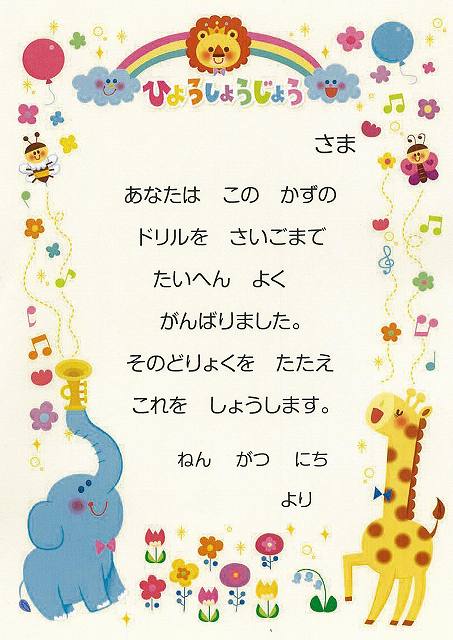 ひょうしょうじょう
さま
あなたは この かずの
ドリルを さいごまで
たいへん よく
がんばりました。
そのどりょくを たたえ
これを しょうします。
ねん がつ にち
より